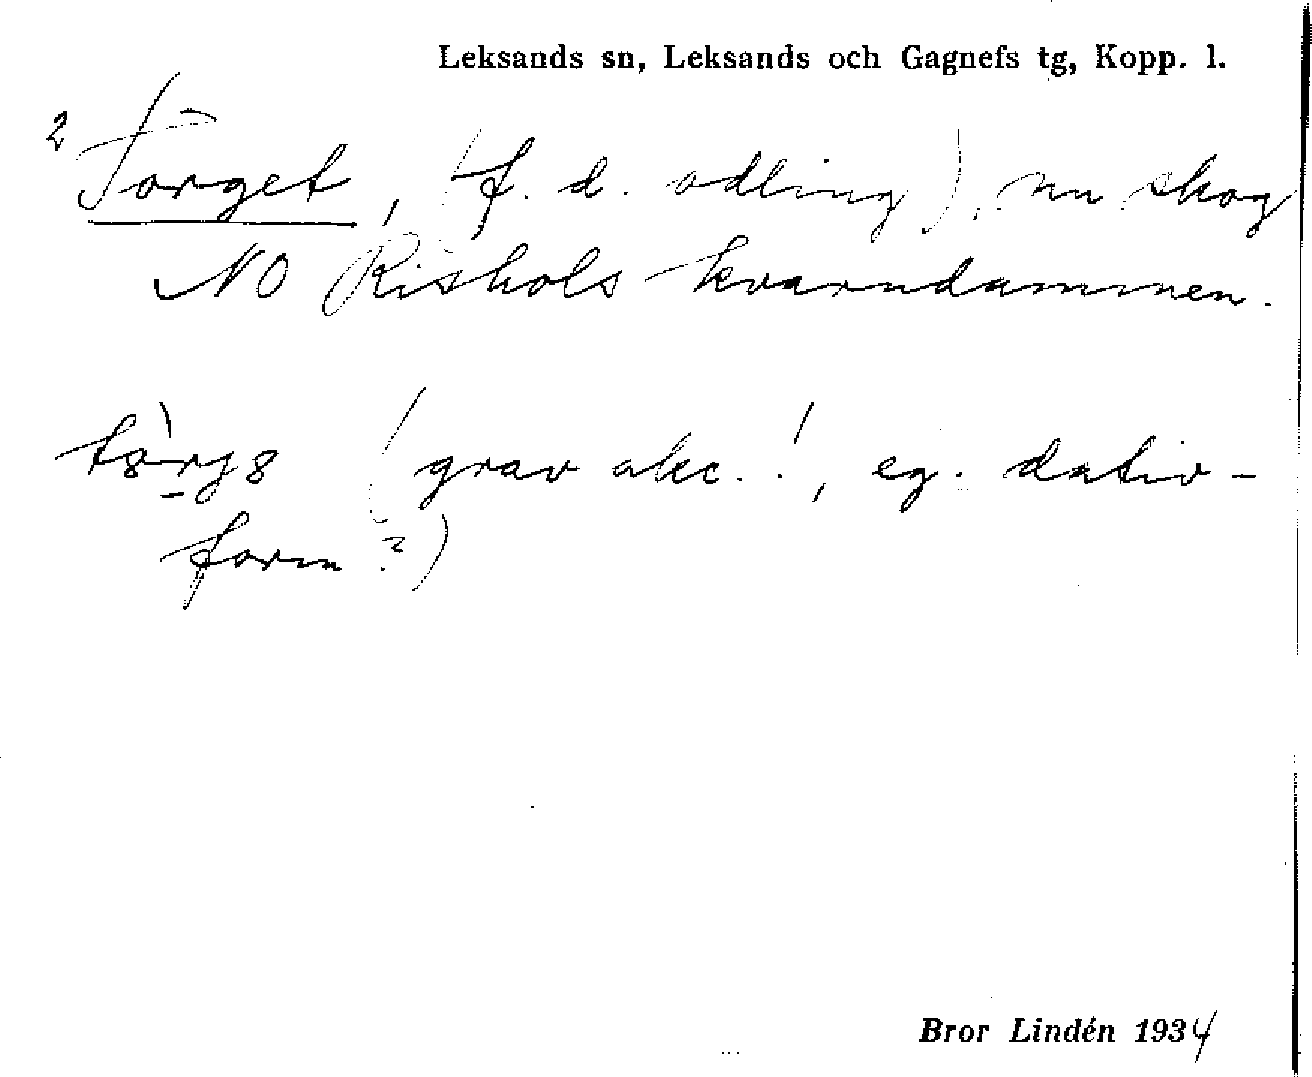 Leksands sn, Leksands och Gagnefs tg, Kopp. l.
2 Torget, (f. d. odling), nu skog
NO Rishols kvarndammen.
(grav akc.!, eg. dativ-
form?)
Bror Lindén 1934